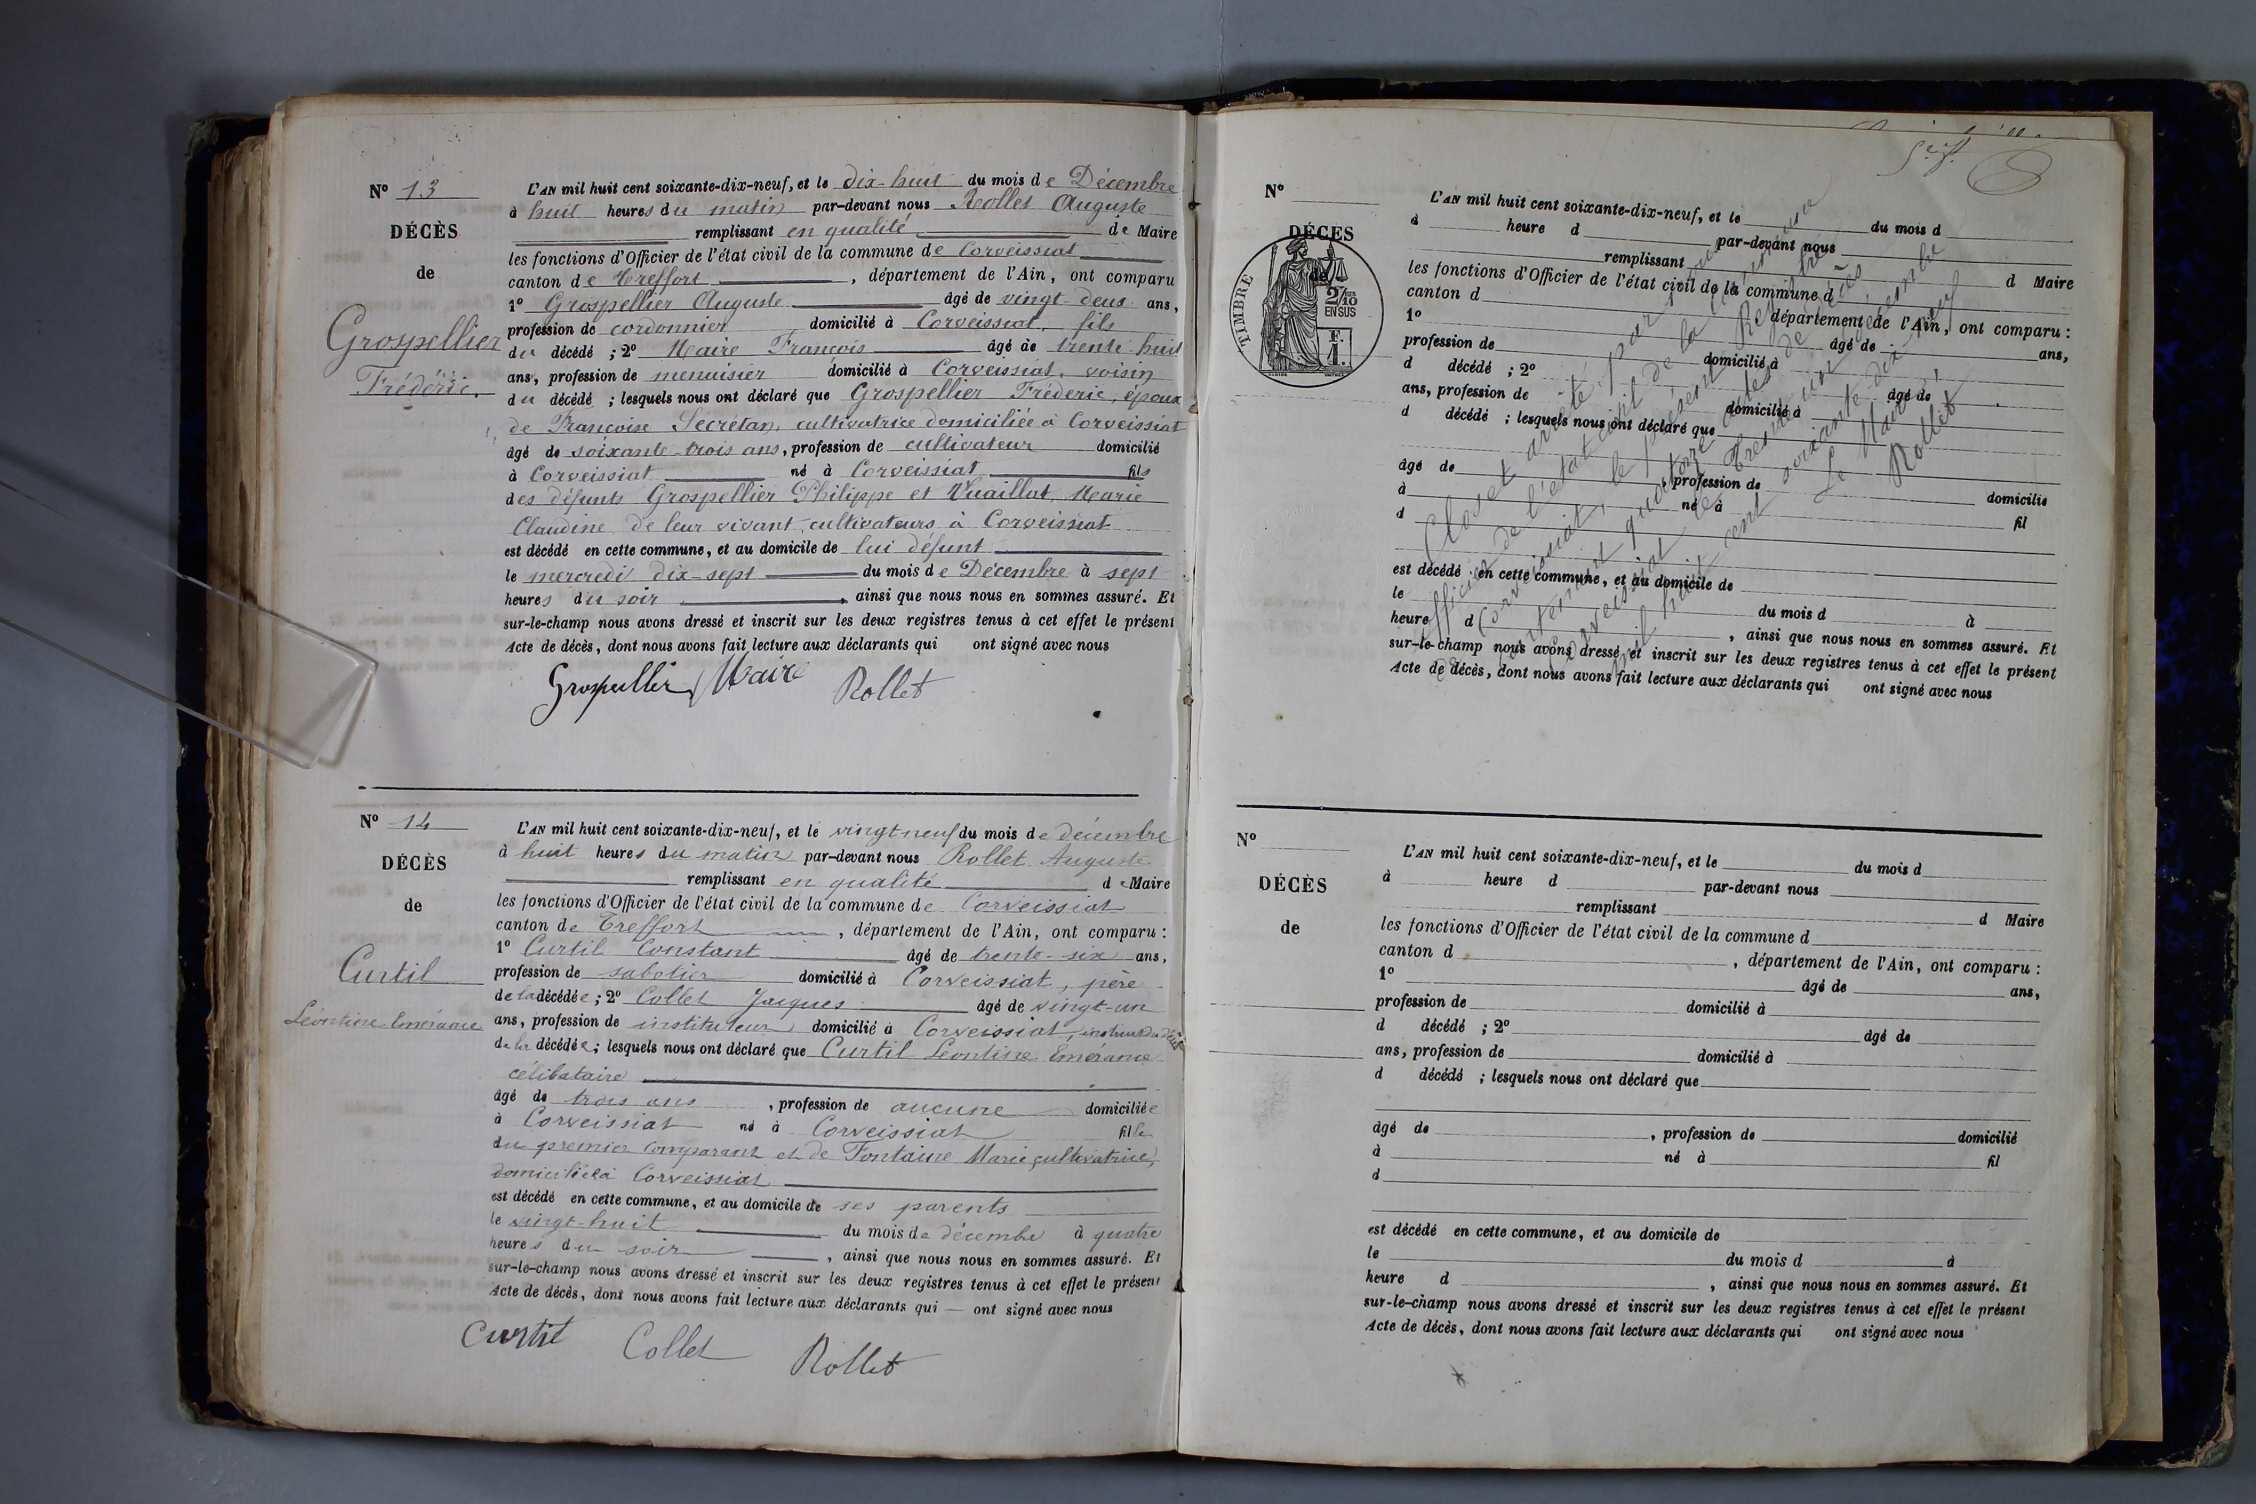 N° 13
DÉCÈS
de
Grospellier
Frédéric.
L'AN mil huit cent soixante-dix-neuf, et le dix-huit du mois de Décembre
à huit heures du matin par-devant nous Rollet Auguste
remplissant en qualité de Maire
les fonctions d'Officier de l'état civil de la commune de Corveissiat
canton de Treffort, département de l'Ain, ont comparu
1° Grospellier Auguste âgé de vingt-deux ans,
profession de cordonnier domicilié à Corveissiat, fils
du décédé ; 2° Maire François âgé de trente-huit
ans, profession de menuisier domicilié à Corveissiat, voisin
du décédé ; lesquels nous ont déclaré que Grospellier Fréderic, époux
de Françoise Secrétan, cultivatrice domiciliée à Corveissiat
âgé de soixante-trois ans, profession de cultivateur domicilié
à Corveissiat né à Corveissiat fils
des défunts Grospellier Philippe et Vuaillat, Marie
Claudine de leur vivant cultivateurs à Corveissiat
est décédé en cette commune, et au domicile de lui défunt
le mercredi dix-sept du mois de Décembre à sept
heures du soir, ainsi que nous nous en sommes assuré. Et
sur-le-champ nous avons dressé et inscrit sur les deux registres tenus à cet effet le présent
Acte de décès, dont nous avons fait lecture aux déclarants qui ont signé avec nous
Grospellier Maire Rollet
N° 14
DÉCÈS
de
Curtil
Léontine Emérance
L'AN mil huit cent soixante-dix-neuf, et le vingt neuf du mois de décembre
à huit heures du matin par-devant nous Rollet Auguste
remplissant en qualité de Maire
les fonctions d'Officier de l'état civil de la commune de Corveissiat
canton de Treffort, département de l'Ain, ont comparu :
1° Curtil Constant âgé de trente-six ans,
profession de sabotier domicilié à Corveissiat, père
de la décédée ; 2° Collet Jacques âgé de vingt-un
ans, profession de instituteur domicilié à Corveissiat,
de la décédée ; lesquels nous ont déclaré que Curtil Léontine Emérance
célibataire
âgé de trois ans, profession de aucune domiciliée
à Corveissiat né à Corveissiat fille
du premier comparant et de Fontaine Marie, cultivatrice,
domiciliée à Corveissiat
est décédé en cette commune, et au domicile de ses parents
le vingt-huit du mois de décembre à quatre
heures du soir, ainsi que nous nous en sommes assuré. Et
sur-le-champ nous avons dressé et inscrit sur les deux registres tenus à cet effet le présent
Acte de décès, dont nous avons fait lecture aux déclarants qui — ont signé avec nous
Curtil Collet Rollet
N°
DÉCES
de
TIMBRE
2/10
EN SUS
F.
1.
L'AN mil huit cent soixante-dix-neuf, et le du mois d
à heure d par-devant nous
remplissant d Maire
les fonctions d'Officier de l'état civil de la commune d
canton d département de l'Ain, ont comparu :
1° âgé de ans,
profession de domicilié à
d décédé ; 2° âgé de
ans, profession de domicilié à
d décédé ; lesquels nous ont déclaré que
âgé de , profession de domicilié
à né à fil
d
est décédé en cette commune, et au domicile de
le du mois d à
heure d , ainsi que nous nous en sommes assuré. Et
sur-le-champ nous avons dressé et inscrit sur les deux registres tenus à cet effet le présent
Acte de décès, dont nous avons fait lecture aux déclarants qui ont signé avec nous
Clos et arrêté par nous
officier de l'état civil de la commune
Corveissiat, le présent Registre
contenant quatorze actes de décès
Corveissiat le Trente-un Décembre
mil huit cent soixante-dix-neuf
Le Maire,
Rollet
N°
DÉCÈS
de
L'AN mil huit cent soixante-dix-neuf, et le du mois d
à heure d par-devant nous
remplissant d Maire
les fonctions d'Officier de l'état civil de la commune d
canton d , département de l'Ain, ont comparu :
1° âgé de ans,
profession de domicilié à
d décédé ; 2° âgé de
ans, profession de domicilié à
d décédé ; lesquels nous ont déclaré que
âgé de , profession de domicilié
à né à fil
d
est décédé en cette commune, et au domicile de
le du mois d à
heure d , ainsi que nous nous en sommes assuré. Et
sur-le-champ nous avons dressé et inscrit sur les deux registres tenus à cet effet le présent
Acte de décès, dont nous avons fait lecture aux déclarants qui ont signé avec nous